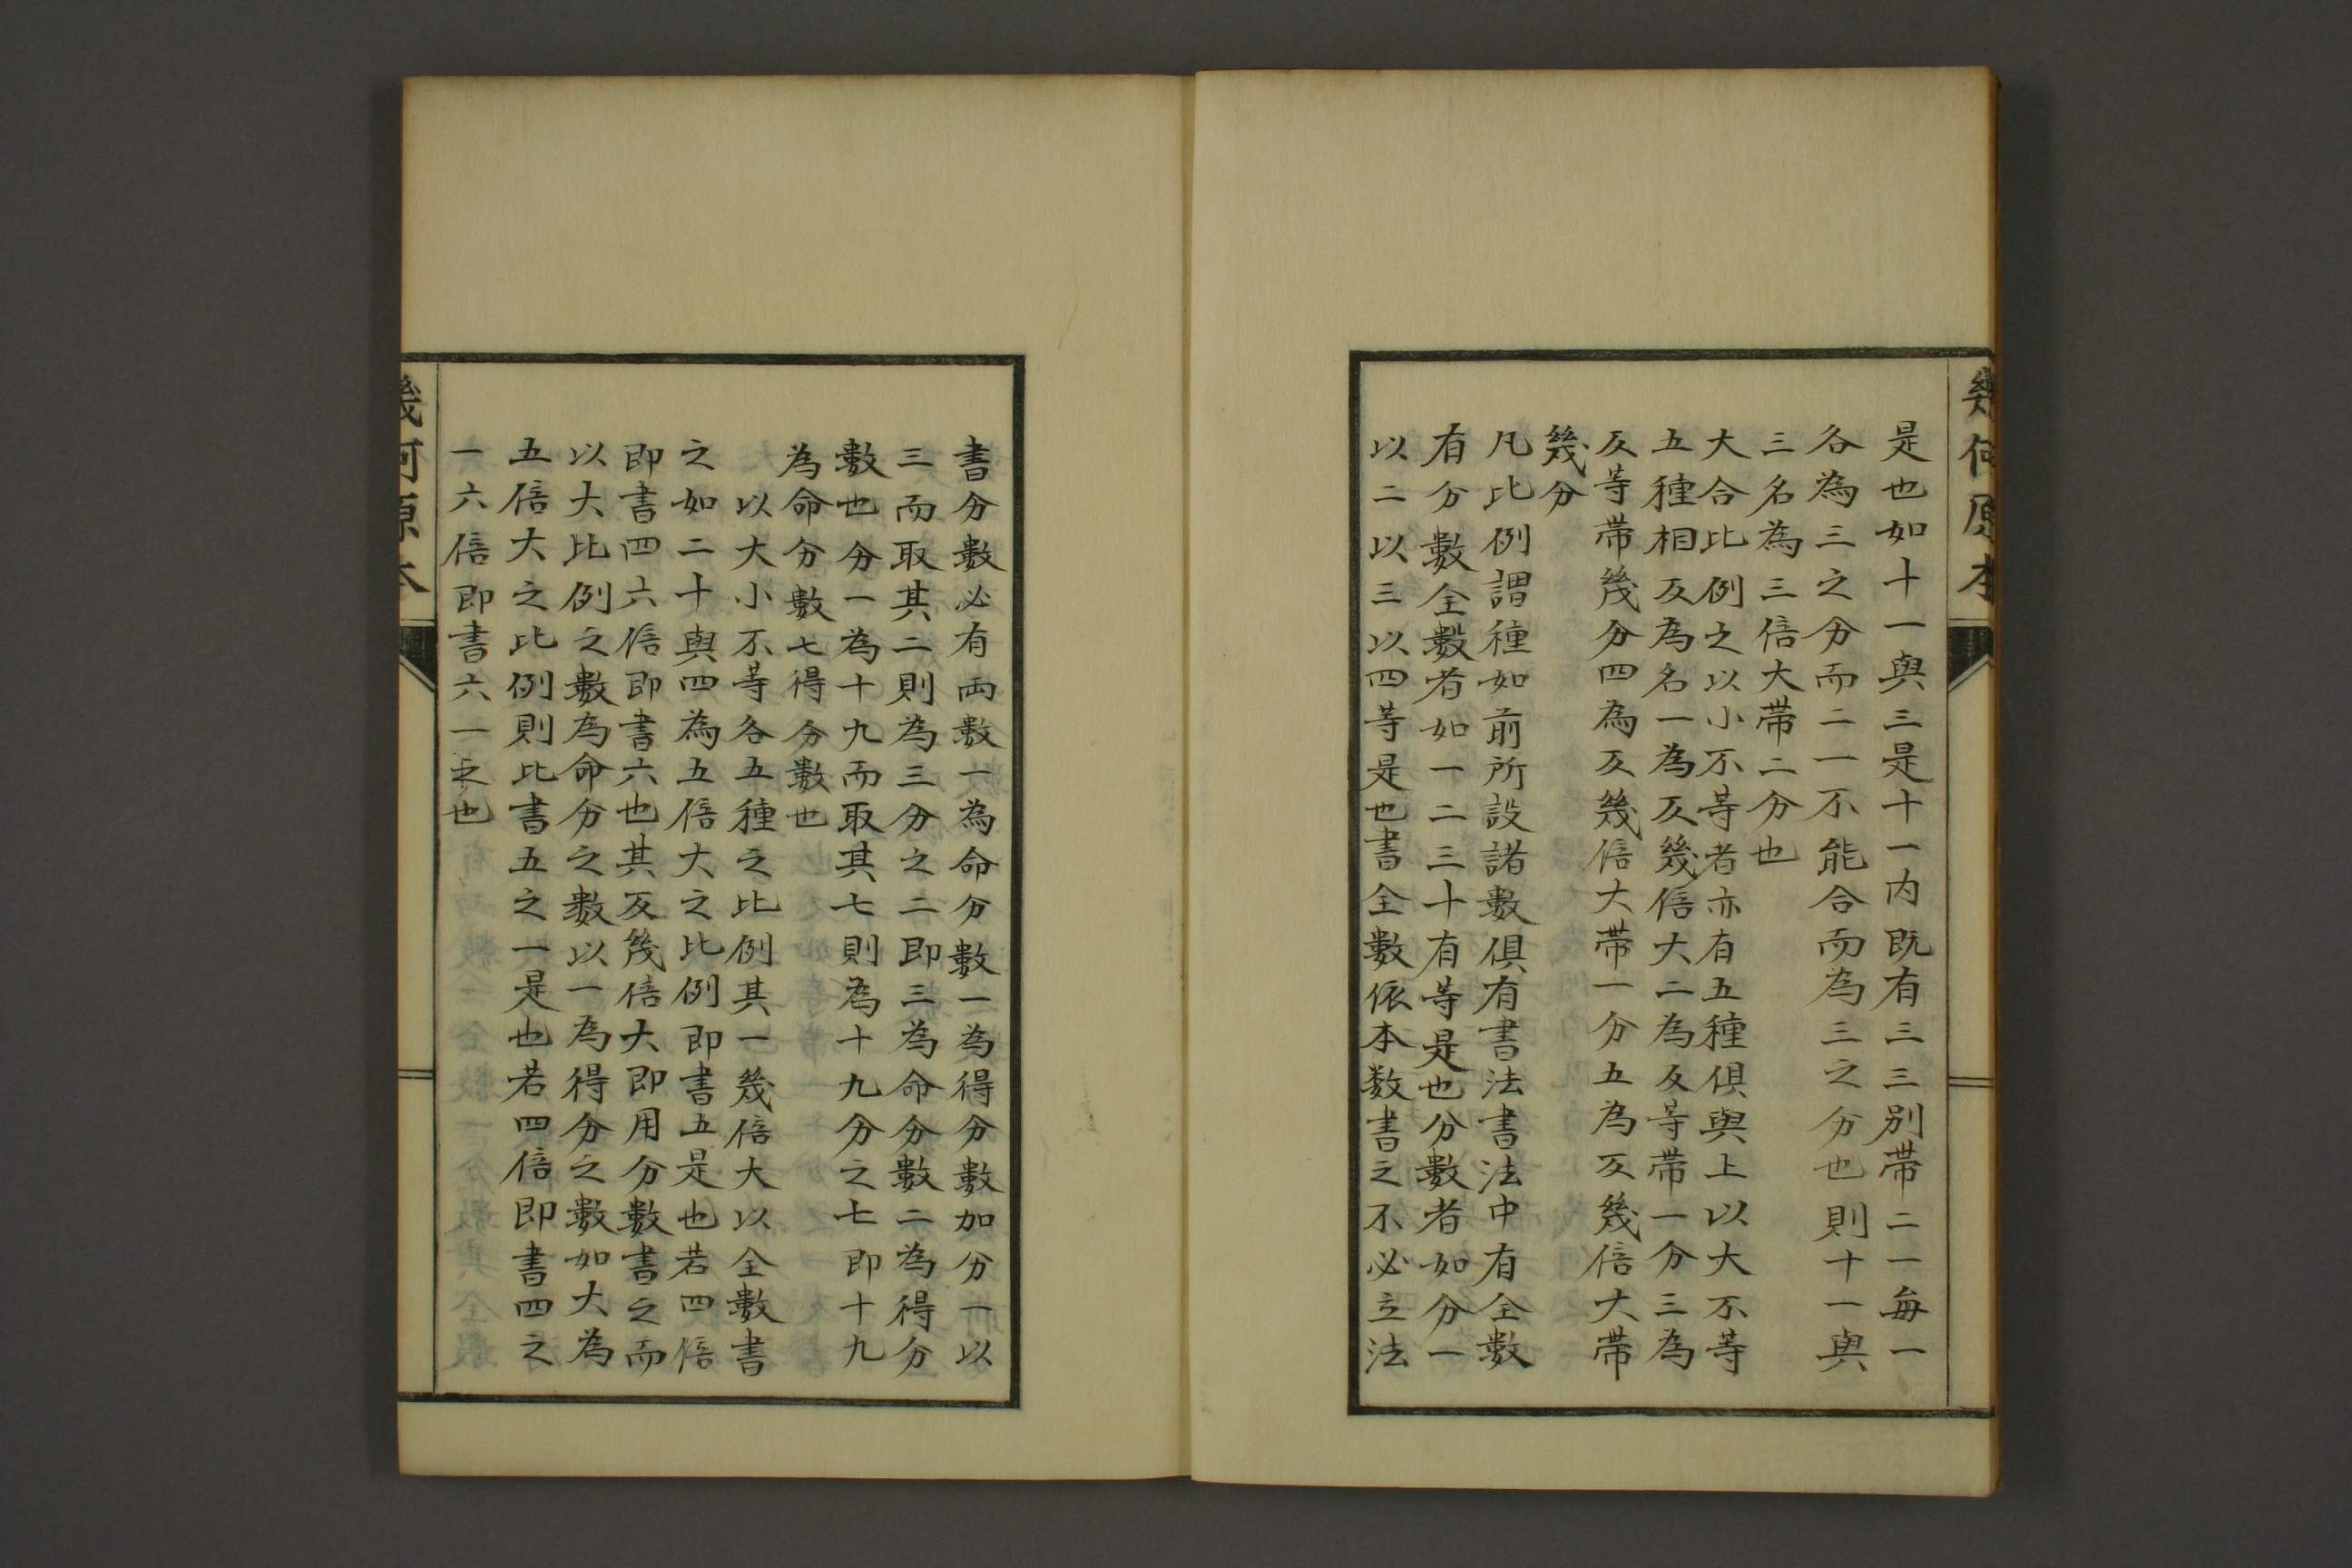 幾何原本
是也如十一與三是十一内既有三三别帶二一每一
各為三之分而二一不能合而為三之分也則十一與
三名為三倍大帶二分也
大合比例之以小不等者亦有五種俱與上以大不等
五種相反為名一為反幾倍大二為反等帶一分三為
反等帶幾分四為反幾倍大帶一分五為反幾倍大帶
幾分
凡比例謂種如前所設諸數俱有書法書法中有全數
有分數全數者如一二三十有等是也分數者如分一
以二以三以四等是也書全數依本数書之不必立法
書分數必有両數一為命分數一為得分數加分一以
三而取其二則為三分之二即三為命分數二為得分
數也分一為十九而取其七則為十九分之七即十九
為命分數七得分數也
以大小不等各五種之比例其一幾倍大以全數書
之如二十與四為五倍大之比例即書五是也若四倍
即書四六倍即書六也其反幾倍大即用分數書之而
以大比例之數為命分之數以一為得分之數如大為
五倍大之比例則比書五之一是也若四倍即書四之
一六倍即書六一之也
幾何原本